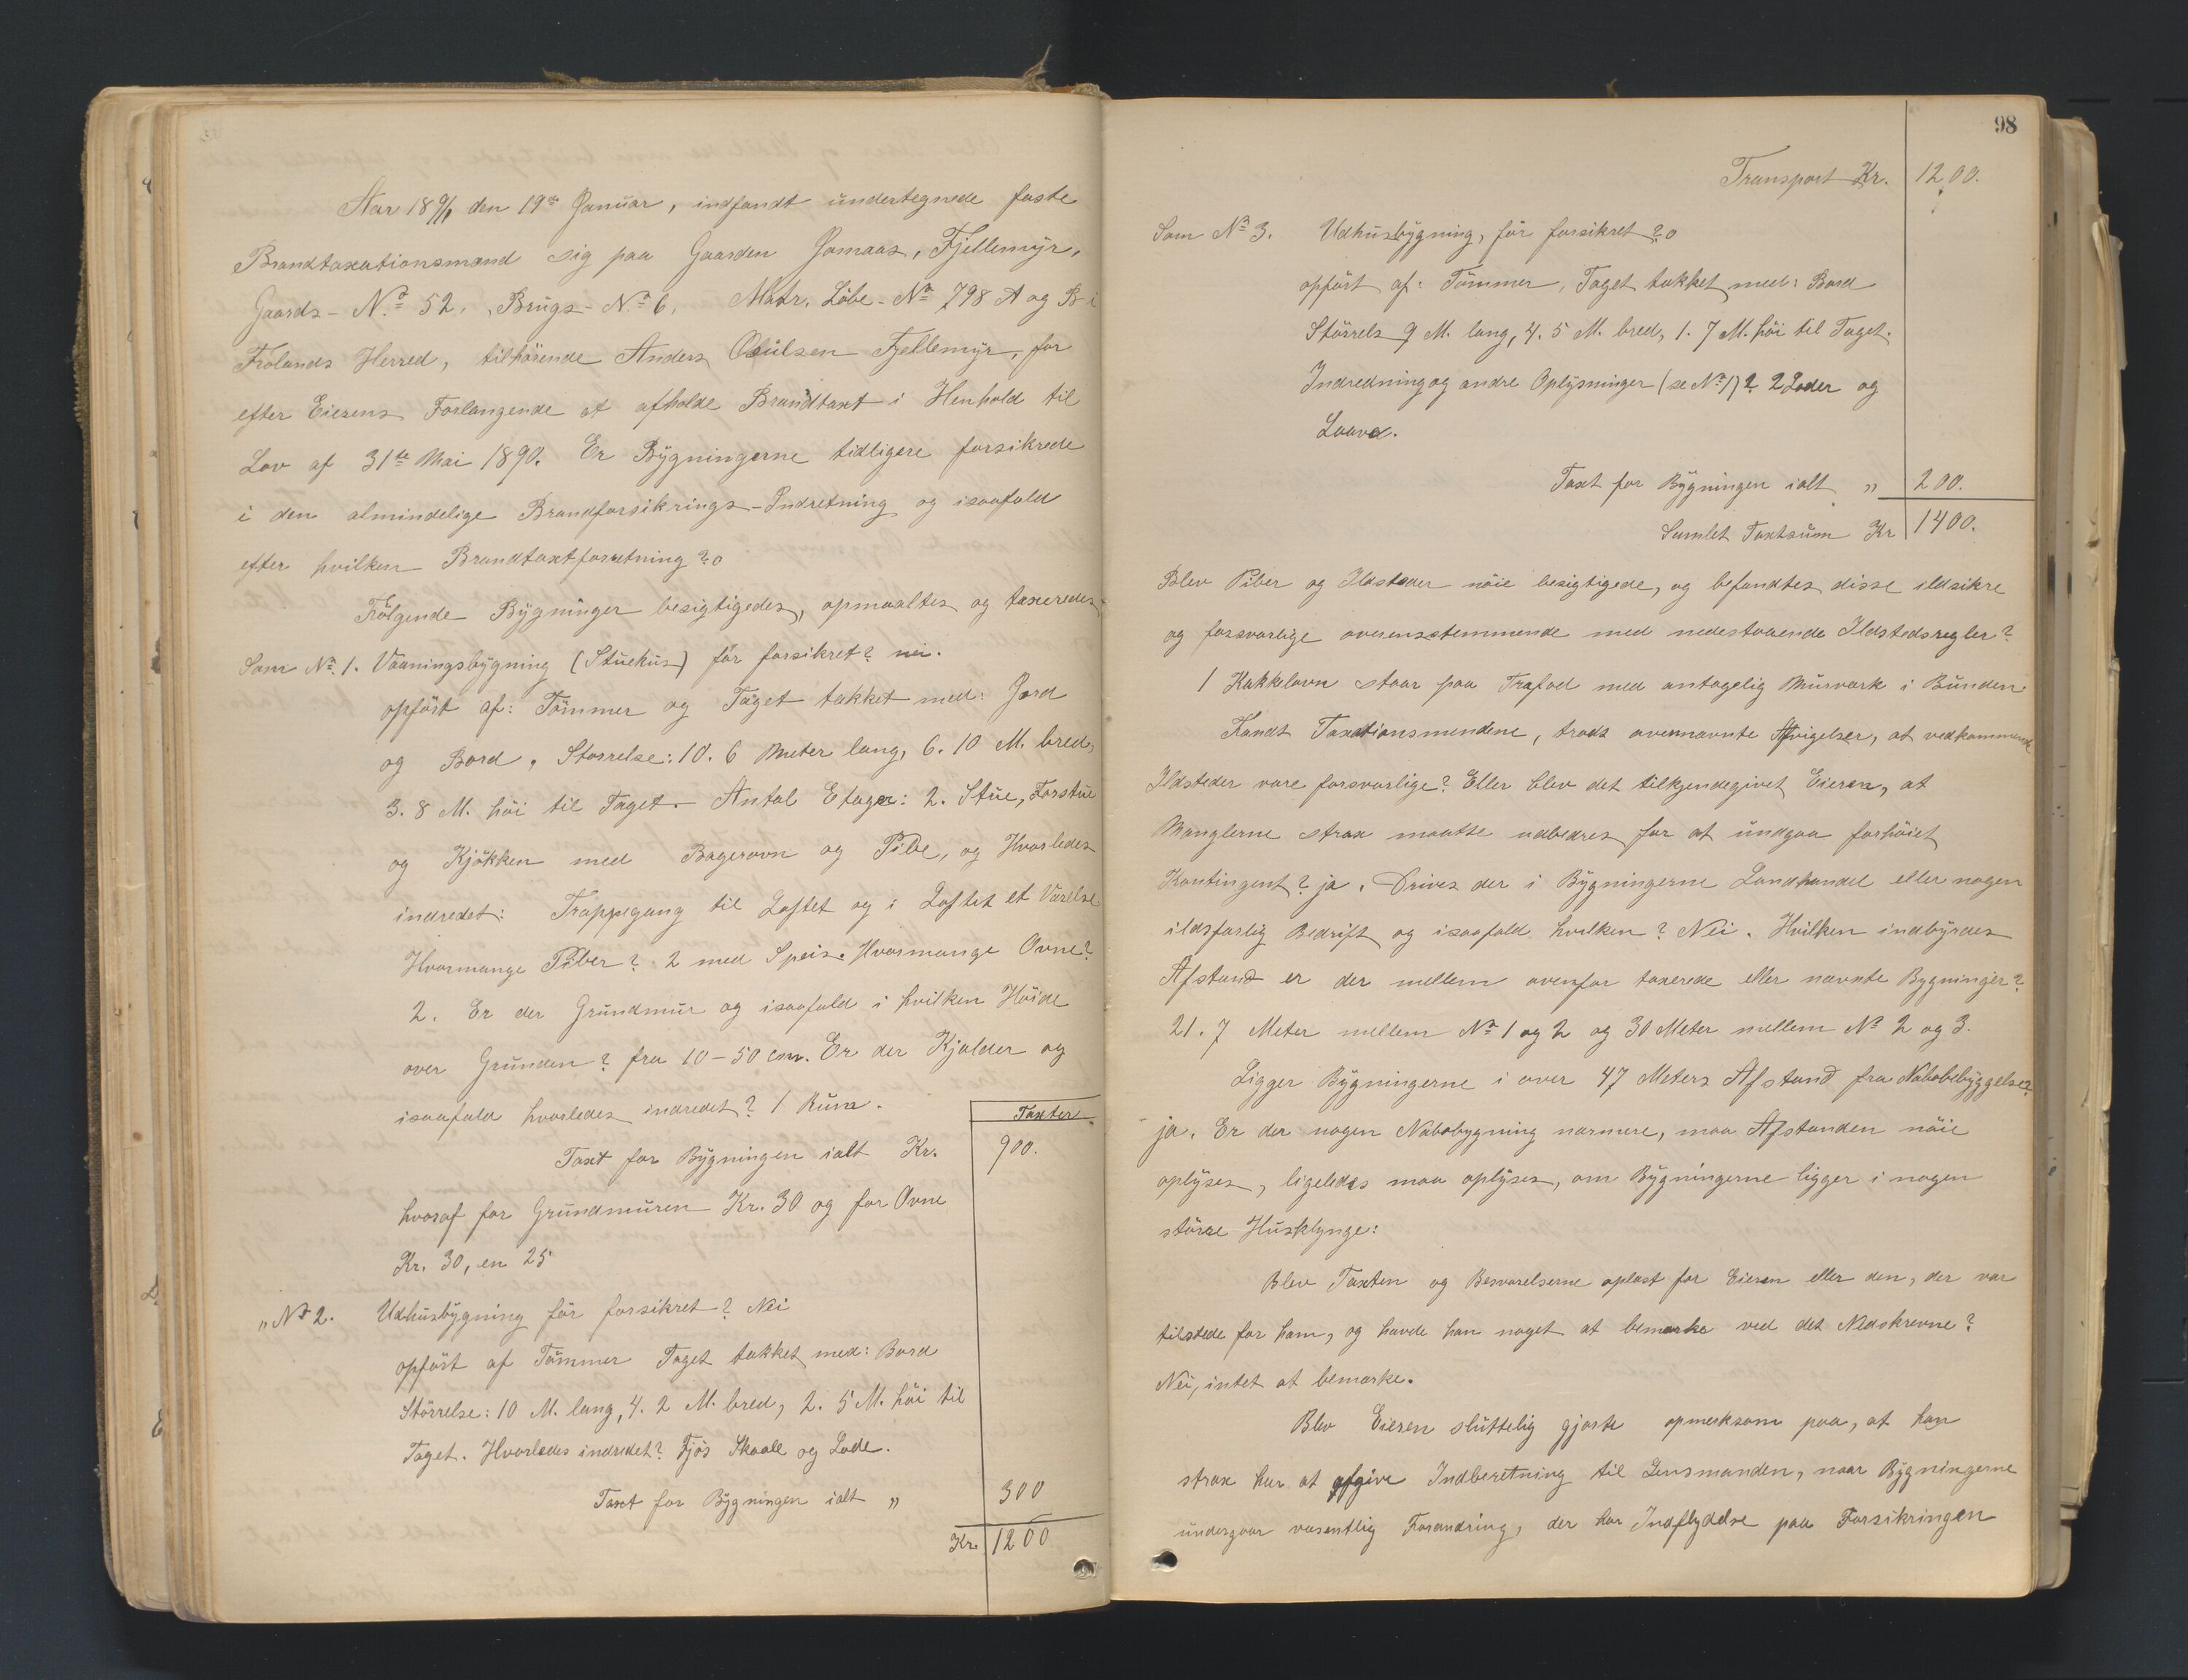 Aar 18 9/1 den 19de Januar, indfandt undertegnede faste
Brandtaxationsmænd sig paa Gaarden Jomaas, Fjellemyr,
Gaards-No 52, Brugs-No 6, Matr. Löbe-No 798 A og B i
Frolands Herred, tilhörende Anders Fjellemyr, for
efter Eierens Forlangende at afholde Brandtaxt i Henhold til
Lov af 31te Mai 1890. Er Bygningerne tidligere forsikrede
i den almindelige Brandforsikrings-Indretning og isaafald
efter hvilken Brandtaxtforretning? o
Fölgende Bygninger besigtigedes, opmaaltes og taxeredes
Som No 1. Vaaningsbygning (Stuehus) för forsikret? nei.
opfört af: Tömmer og Taget tækket med: Jord
og Bord, Storrelse: 10.6 Meter lang, 6.10 M. bred,
3.8 M. höi til Taget. Antal Etager: 2. Stue, Forstue
og Kjökken med Bagerovn og Pibe, og Hvorledes
indredet: Trappegang til Loftet og i Loftet et Værelse
Hvormange Piber? 2 med Speis. Hvormange Ovne?
2. Er der Grundmur og isaafald i hvilken Höide
over Grunden? fra 10-50 cm. Er der Kjælder og
isaafald hvorledes indredet? 1 Rum.
Taxter
Taxt for Bygningen ialt Kr. 900.
hvoraf for Grundmuren Kr. 30 og for Ovne
Kr. 30, en 25
" No 2. Udhusbygning för forsikret? Nei
opfört af Tömmer Taget tækket med: Bord
Störrelse: 10 M. lang, 4.2 M. bred, 2.5 M. höi til
Taget. Hvorledes indredet? Fjös Skaale og Lade.
Taxt for Bygningen ialt " 300
Kr. 1200
98
Transport Kr. 1200.
Som No 3. Udhusbygning, för forsikret? o
opfört af: Tömmer, Taget tækket med: Bord
Störrels 9 M. lang, 4.5 M. bred, 1.7 M. höi til Taget.
Indredning og andre Oplysninger (se No 1)? 2 Lader og
Laave.
Taxt for Bygningen ialt " 200.
Samlet Taxtsum Kr 1400.
Blev Piber og Ildsteder nöie besigtigede, og befandtes disse ildsikre
og forsvarlige overensstemmende med nedestaaende Ildstedsregler?
1 Kakklovn staar paa Træfod med antagelig Murværk i Bunden
Fandt Taxationsmendene, trods ovennævnte Afvigelser, at vedkommende
Ildsteder vare forsvarlige? Eller blev det tilkjendegivet Eieren, at
Manglerne strax maatte udbedres for at undgaa forhöiet
Kontingent? ja. Drives der i Bygningerne Landhandel eller nogen
ildsfarlig Bedrift og isaafald hvilken? Nei. Hvilken indbyrdes
Afstand er der mellem ovenfor taxerede eller nævnte Bygninger?
21.7 Meter mellem No 1 og 2 og 30 Meter mellem No 2 og 3.
Ligger Bygningerne i over 47 Meters Afstand fra Nabobebyggelse?
ja. Er der nogen Nabobygning nærmere, maa Afstanden nöie
oplyses, ligeledes maa oplyses, om Bygningerne ligger i nogen
större Husklynge:
Blev Taxten og Besvarelserne oplæst for Eieren eller den, der var
tilstede for ham, og havde han noget at bemærke ved det Nedskrevne?
Nei, intet at bemærke.
Blev Eieren sluttelig gjorte opmerksom paa, at han
strax har at afgive Indberetning til Lensmanden, naar Bygningerne
undergaar væsentlig Forandring, der har Indflydelse paa Forsikringen